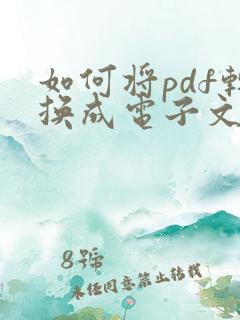 如何将pdf转
换成电子文
8号
未经同意禁止转载